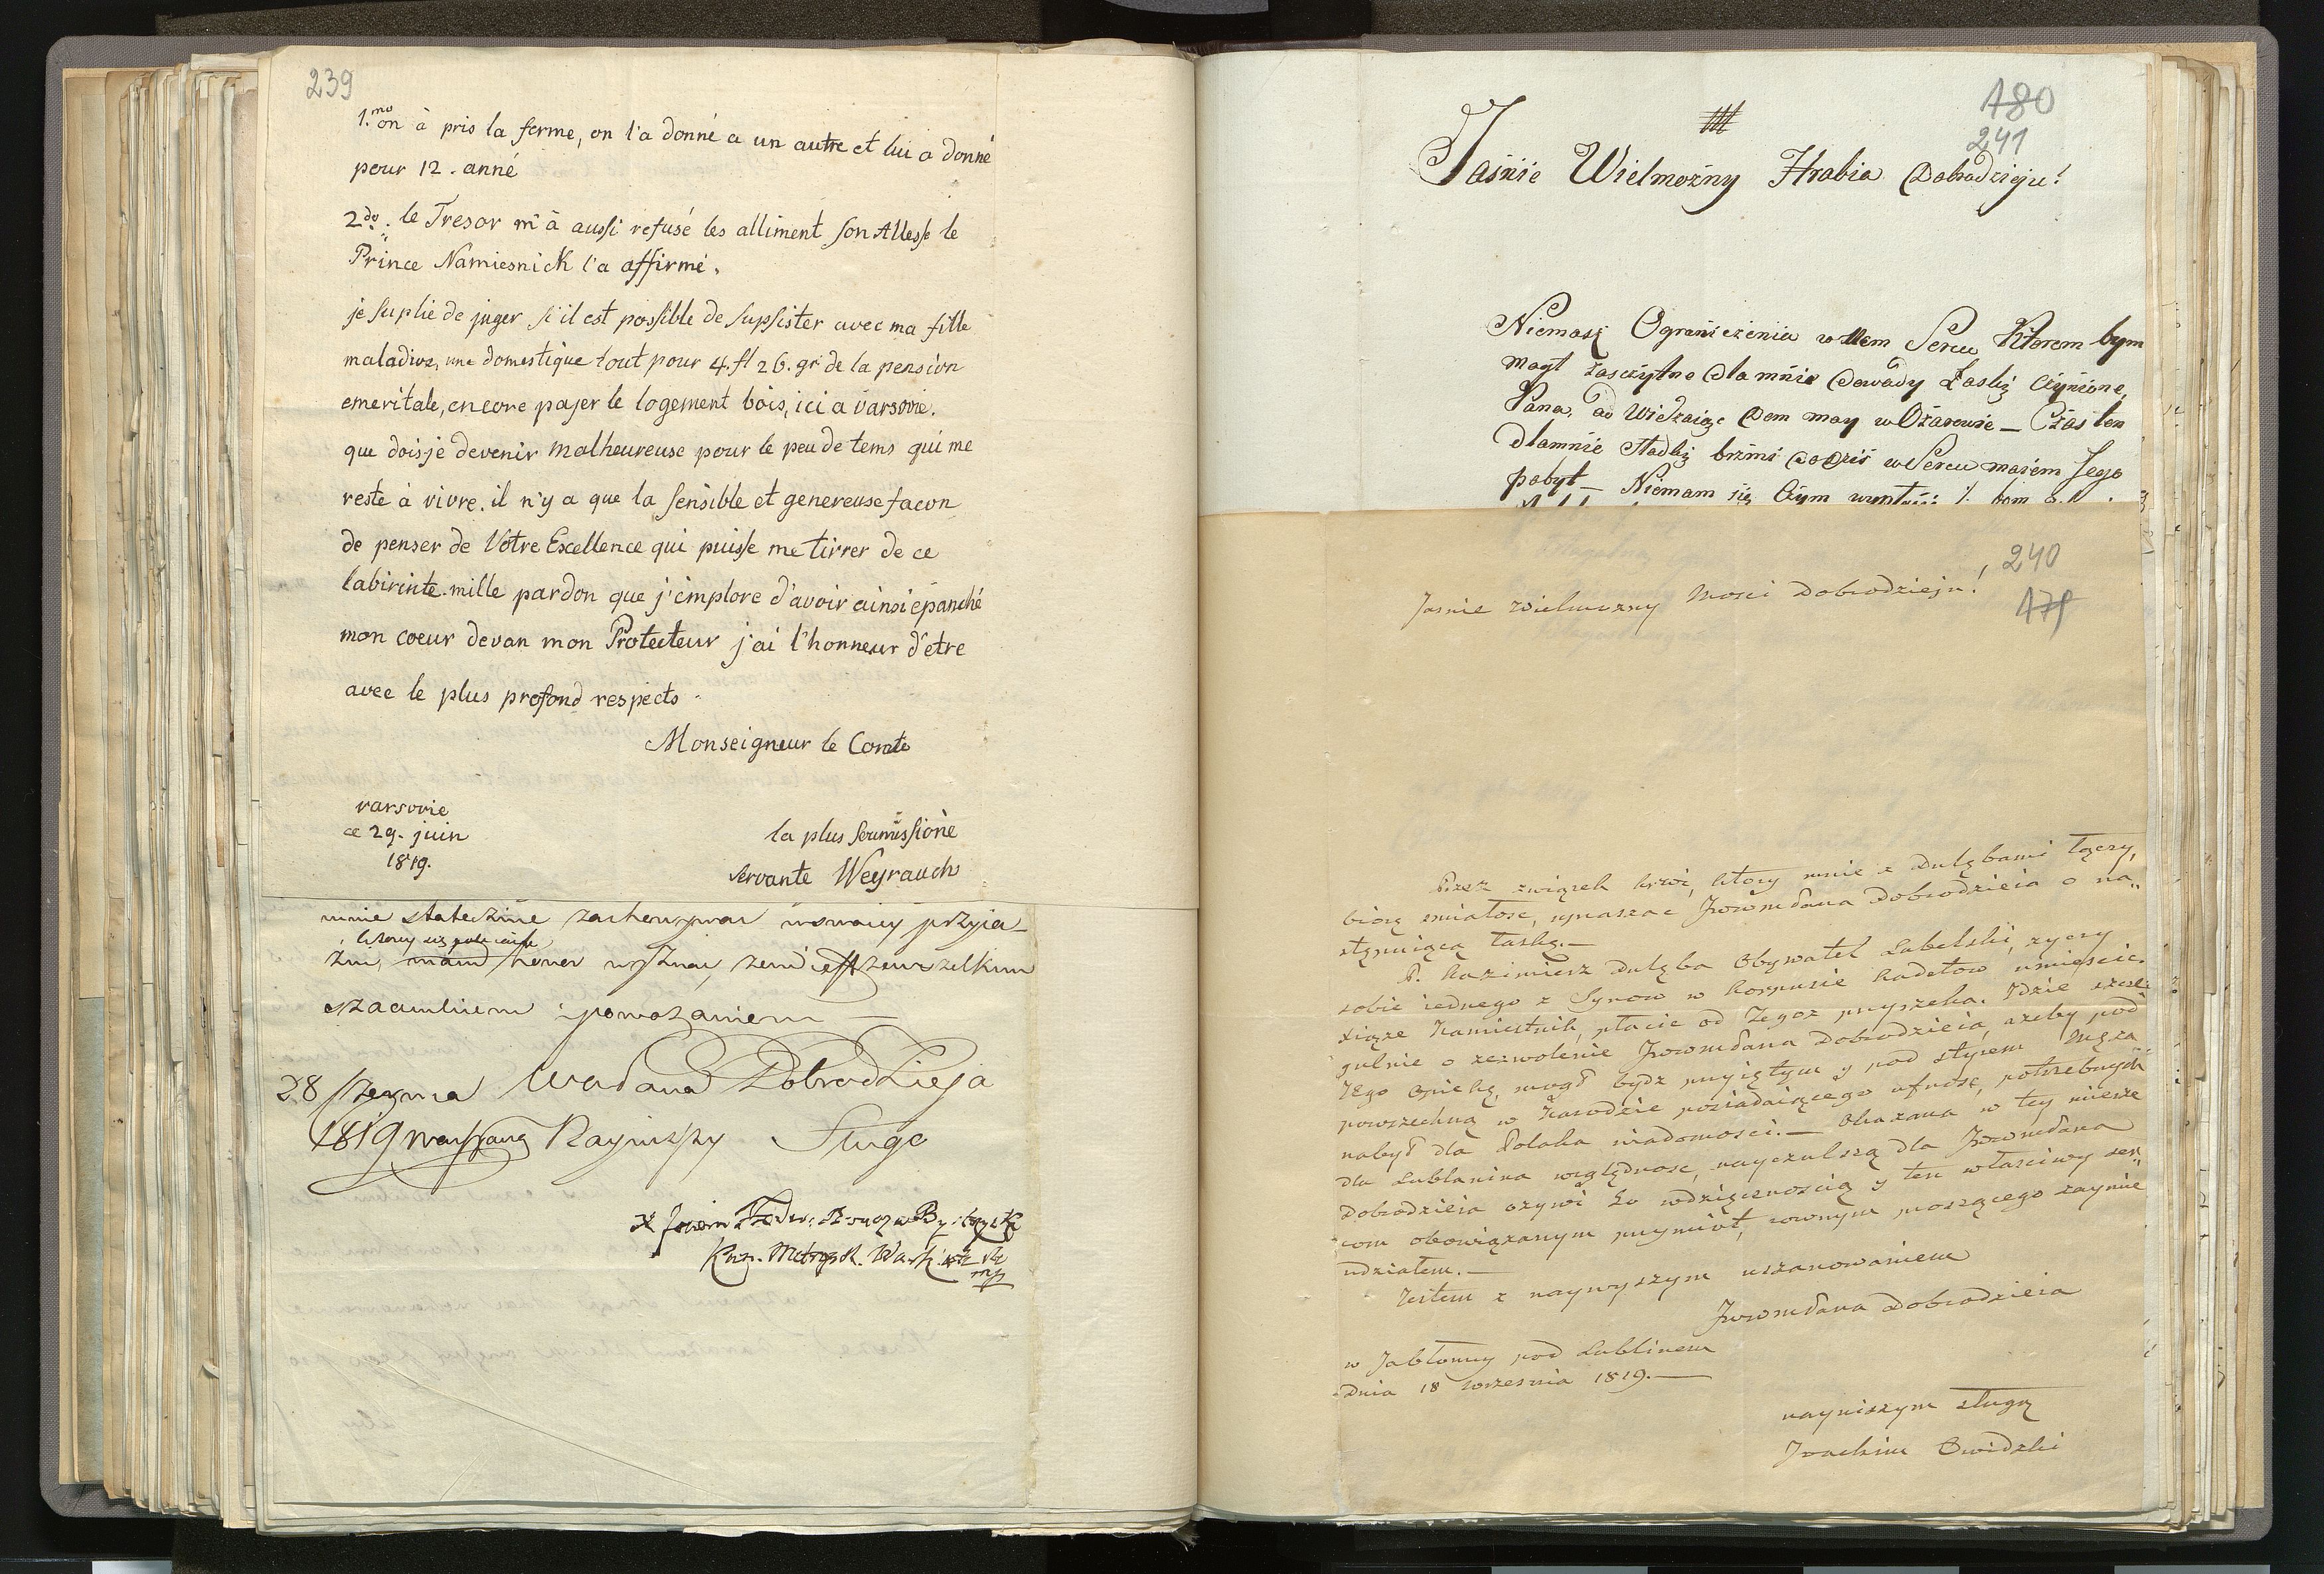 239
1.mo on à pris la ferme, on l'a donné a un autre et lui a donné
pour 12. anné
2do: le Tresor m'à aussi refusé les alliment son Allesse le
Prince Namiesnick l'a affirmé.
je suplie de juger s'il est possible de supsister avec ma fille
maladive, une domestique tout pour 4. fl 26. gr de la pension
emeritale, encore pajer le logement bois, ici a varsovie.
que doisje devenir malheureuse pour le peu de tems qui me
reste à vivre. il n'y a que la sensible et genereuse facon
de penser de Votre Excellence qui puisse me tirrer de ce
labirinte. mille pardon que j'emplore d'avoir ainsi epanché
mon coeur devan mon Protecteur j'ai l'honneur d'etre
avec le plus profond respects
Monseigneur le Comte
varsovie
ce 29. juin
1819.
la plus soumissione
servante Weyrauch
mnie statecznie zachowywac wswoiey przyia
zni, honor wyznac, zem iest zewszelkim
szacunkiem i powazaniem
28 Wa Pana Dobrodzieja
1819 Nayniszszy Sługa
180
241
Jaśnie Wielmożny Hrabia Dobrodzieju!
Niemasz Ograniczenia w tem Sercu Ktorem bym
mógł zaszczytne dla mnie dowody Łaski czynione,
Pana, od Wiedzaiąc Dom moy w Ożarowie – Czas ten
dlamnie słodki brzmi do dziś w Sercu moiem Jego
pobyt – Niemam się czym
240
179
Jasnie Wielmozny Mosci Dobrodzieju!
Przez związek krwi, ktory mnie z Dulębami łączy,
biorę smiałosc, upraszac JWWmPana Dobrodzieia o na„
stępuiącą łaskę.—
P. Kazimierz Dulęba Obywatel Lubelski, zyczy
sobie iednego z Synow w Korpusie Kadetow umiescic.
Xiąze Namiestnik, płacic od Tegoz przyrzeka. Idzie szcze„
gulnie o zezwolenie JWWmPana Dobrodzieia, azeby pod
Jego Opieką, mogł bydz przyiętym y pod styrem Męza
powszechną w Narodzie posiadaiącego ufnosc, potrzebnych
nabył dla Polaka wiadomosci.— Okazana w tey mierze
dla Lublanina względnosc, nayczulszą dla JWWmPana
Dobrodzieia ozywi Go wdzięcznoscią y ten własciwy ser„
com obowiązanym przymiot, rownym proszącego zaymie
udziałem.—
Jestem z naywyszym uszanowaniem
JWWmPana Dobrodzieia
w Jabłonny pod Lublinem
Dnia 18 Wrzesnia 1819.—
nayniszym sługą
Joachim Owidzki